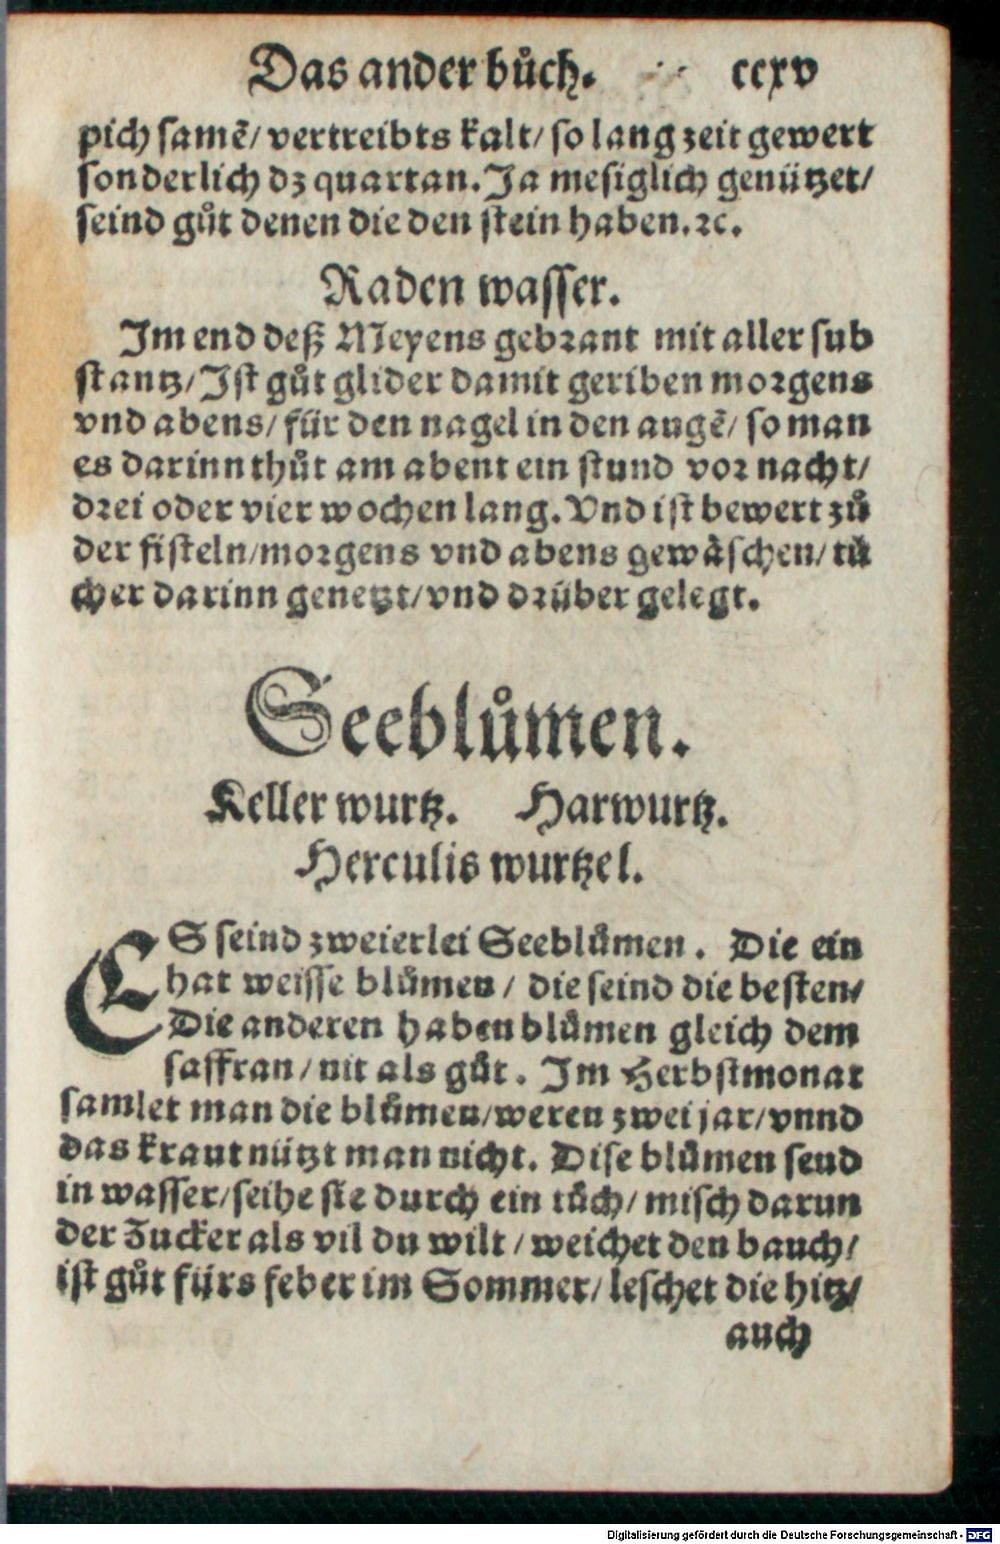 Das ander bůch. ccxv
pich samē/ vertreibts kalt/ so lang zeit gewert
sonderlich dz quartan. Ja mesiglich genützet/
seind gůt denen die den stein haben. ꝛc.
Raden wasser.
Im end deß Meyens gebrant mit aller sub
stantz/ Ist gůt glider damit geriben morgens
vnd abens/ für den nagel in den augē/ so man
es darinn thůt am abent ein stund vor nacht/
drei oder vier wochen lang. Vnd ist bewert zů
der fisteln/ morgens vnd abens gewäschen/ tü
cher darinn genetzt/ vnd drüber gelegt.
Seeblůmen.
Keller wurtz. Harwurtz.
Herculis wurtzel.
ES seind zweierlei Seeblůmen. Die ein
hat weisse blůmen/ die seind die besten/
Die anderen haben blůmen gleich dem
saffran/ nit als gůt. Im Herbstmonat
samlet man die blůmen/ weren zwei jar/ vnnd
das kraut nützt man nicht. Dise blůmen seud
in wasser/ seihe sie durch ein tůch/ misch darun
der Zucker als vil du wilt/ weichet den bauch/
ist gůt fürs feber im Sommer/ leschet die hitz/
auch
Digitalisierung gefördert durch die Deutsche Forschungsgemeinschaft - DFG